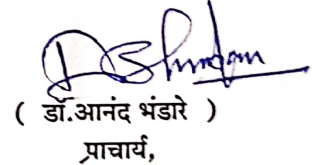 ( डॉ.आनंद भंडारे )
प्राचार्य,